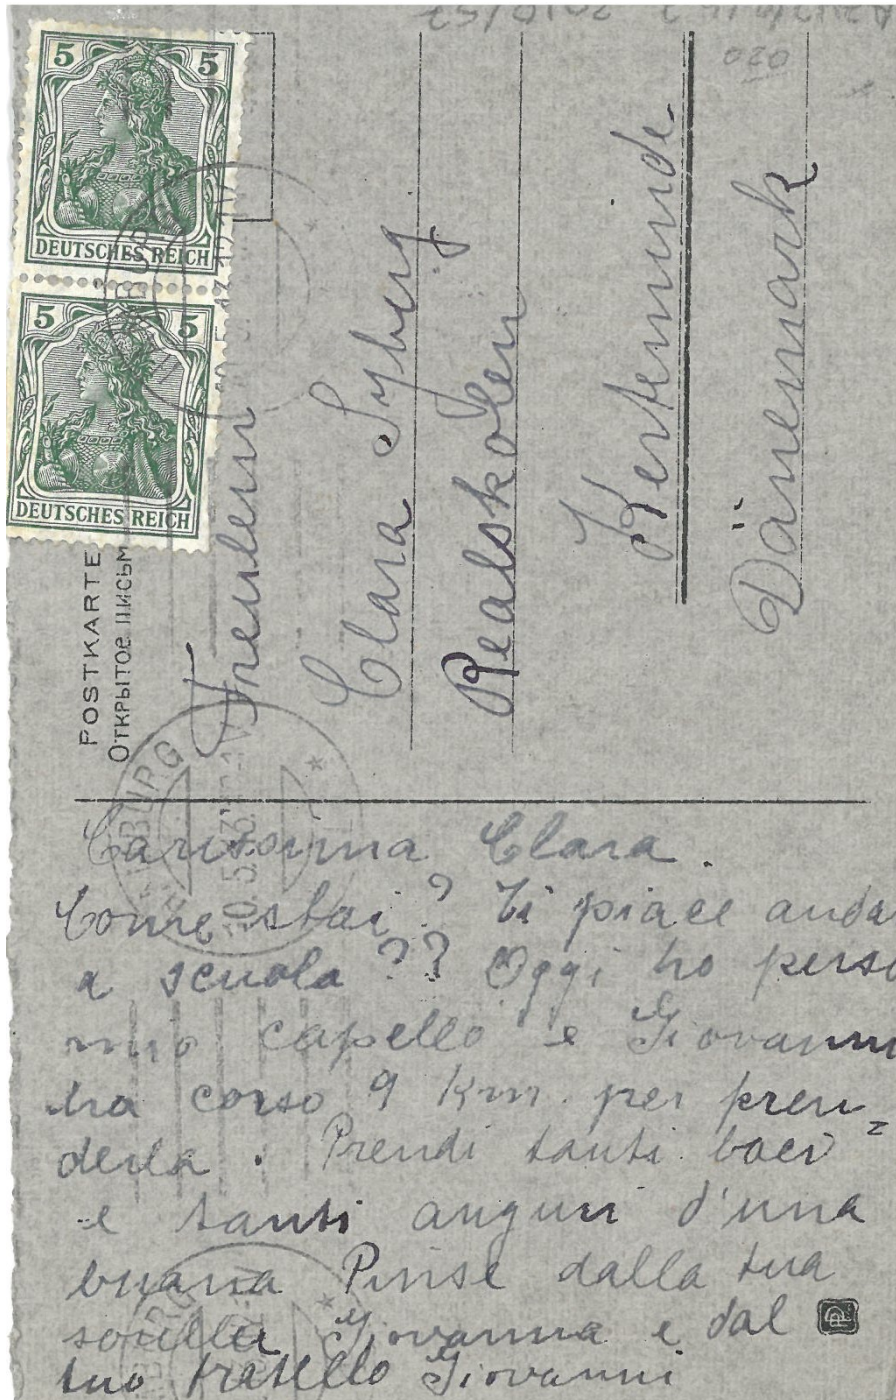 5 5
DEUTSCHES REICH
5 5
DEUTSCHES REICH
POSTKARTE
Открытое письм
Freulein
Clara Syberg
Realskolen
Kerteminde
Dänemark
020
Carissima Clara.
Come stai? Ti piace anda
a scuola?? Oggi ho perso
mio capello e Giovanni
ha corso 9 Km. per pren=
derla. Prendi tanti baci
e tanti auguri d'una
buana Pinse dalla tua
sorella Giovanna e dal
tuo fratello Giovanni